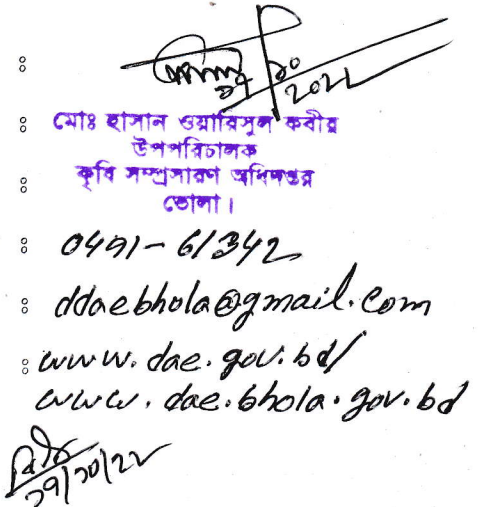 মোঃ হাসান ওয়ারিসুল কবীর
উপপরিচালক
কৃষি সম্প্রসারণ অধিদপ্তর
ভোলা।
: 0491-61342
: ddaebhola@gmail.com
: www.dae.gov.bd/
www.dae.bhola.gov.bd